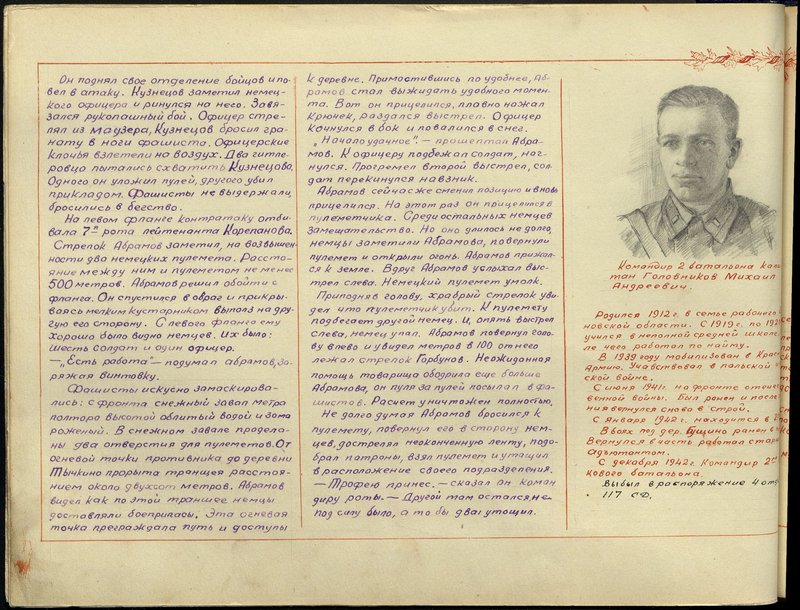 Он поднял свое отделение бойцов и по-
вел в атаку. Кузнецов заметил немец-
кого офицера и ринулся на него. Завя-
зался рукопашный бой. Офицер стре-
лял из маузера, Кузнецов бросил гра-
нату в ноги фашиста. Офицерские
клочья взлетели на воздух. Два гитле-
ровца пытались схватить Кузнецова.
Одного он уложил пулей, другого убил
прикладом. Фашисты не выдержали,
бросились в бегство.
На левом фланге контратаку отби-
вала 7-я рота лейтенанта Корепанова.
Стрелок Абрамов заметил, на возвышен-
ности два немецких пулемета. Рассто-
яние между ним и пулеметом не менее
500 метров. Абрамов решил обойти с
фланга. Он спустился в овраг и прикры-
ваясь мелким кустарником выполз на дру-
гую его сторону. С левого фланга ему
хорошо было видно немцев. Их было:
шесть солдат и один офицер.
— „Есть работа" — подумал абрамов, за-
ряжая винтовку.
Фашисты искусно замаскирова-
лись: с фронта снежный завал метра
полтора высотой облитый водой и замо
роженый. В снежном завале продела-
ны два отверстия для пулеметов. От
огневой точки противника до деревни
Тычкино прорыта траншея расстоя-
нием около двухсот метров. Абрамов
видел как по этой траншее немцы
доставляли боеприпасы. Эта огневая
точка преграждала путь и доступы
к деревне. Примостившись по удобнее, Аб-
рамов стал выжидать удобного момен-
та. Вот он прицелился, плавно нажал
крючек, раздался выстрел. Офицер
качнулся в бок и повалился в снег.
„Начало удачное". — прошептал Абра-
мов. К офицеру подбежал солдат, наг-
нулся. Прогремел второй выстрел, сол-
дат перекинулся навзник.
Абрамов сейчас же сменил позицию и вновь
прицелился. На этот раз он прицелился в
пулеметчика. Среди остальных немцев
замешательство. Но оно длилось не долго,
немцы заметили Абрамова, повернули
пулемет и открыли огонь. Абрамов прижал-
ся к земле. Вдруг Абрамов услыхал выс-
трел слева. Немецкий пулемет умолк.
Приподняв голову, храбрый стрелок уви-
дел что пулеметчик убит. К пулемету
подбегает другой немец. И, опять выстрел
слева, немец упал. Абрамов повернул голо-
ву влево и увидел метров в 100 от него
лежал стрелок Горбунов. Неожиданная
помощь товарища ободрила еще больше
Абрамова, он пуля за пулей посылал в фа-
шистов. Расчет уничтожен полностью.
Не долго думая Абрамов бросился к
пулемету, повернул его в сторону нем-
цев, дострелял неоконченную ленту, подо-
брал патроны, взял пулемет и утащил
в расположение своего подразделения.
— Трофею принес. — сказал он коман
диру роты. — Другой там остался, не
под силу было, а то бы два утощил.
Командир 2 батальона кап
тан Головников Михаил
Андреевич.
Родился 1912 г. в семье рабочего
новской области. С 1919 г. по 192
учился в неполной средней школе
ле чего работал по найму.
В 1939 году мобилизован в Крас
Армию. Участвовал в польской
ской войне.
С июня 1941 г. на фронте отечес
венной войны. Был ранен и после
ния вернулся снова в строй.
С Января 1942 г. находится в
В боях под дер. Гущино ранен
Вернулся в часть работал стар
адъютантом.
С декабря 1942 г. Командир 2го
кового батальона.
Выбыл в распоряжение 4 отд
117 СД.